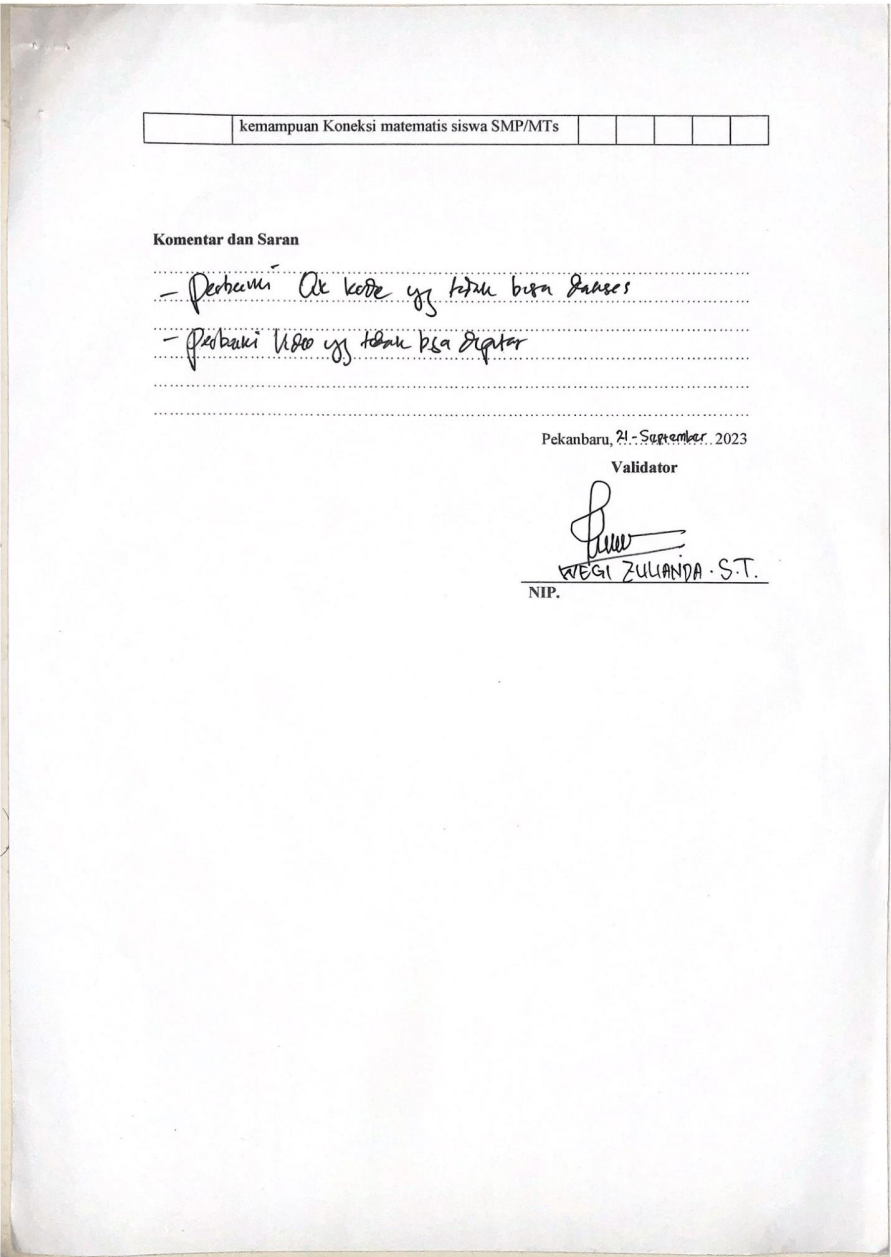 kemampuan Koneksi matematis siswa SMP/MTs
Komentar dan Saran
- Perbaiki QR kode yg tidak bisa diakses
- Perbaiki Video yg tidak bisa diputar
Pekanbaru, 21 - September 2023
Validator
WEGI ZULIANDA . S.T.
NIP.